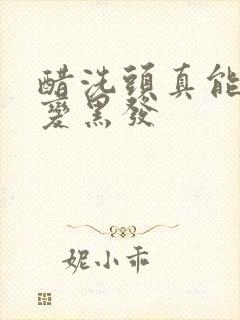 醋洗頭真能
變黑發
妮小乖